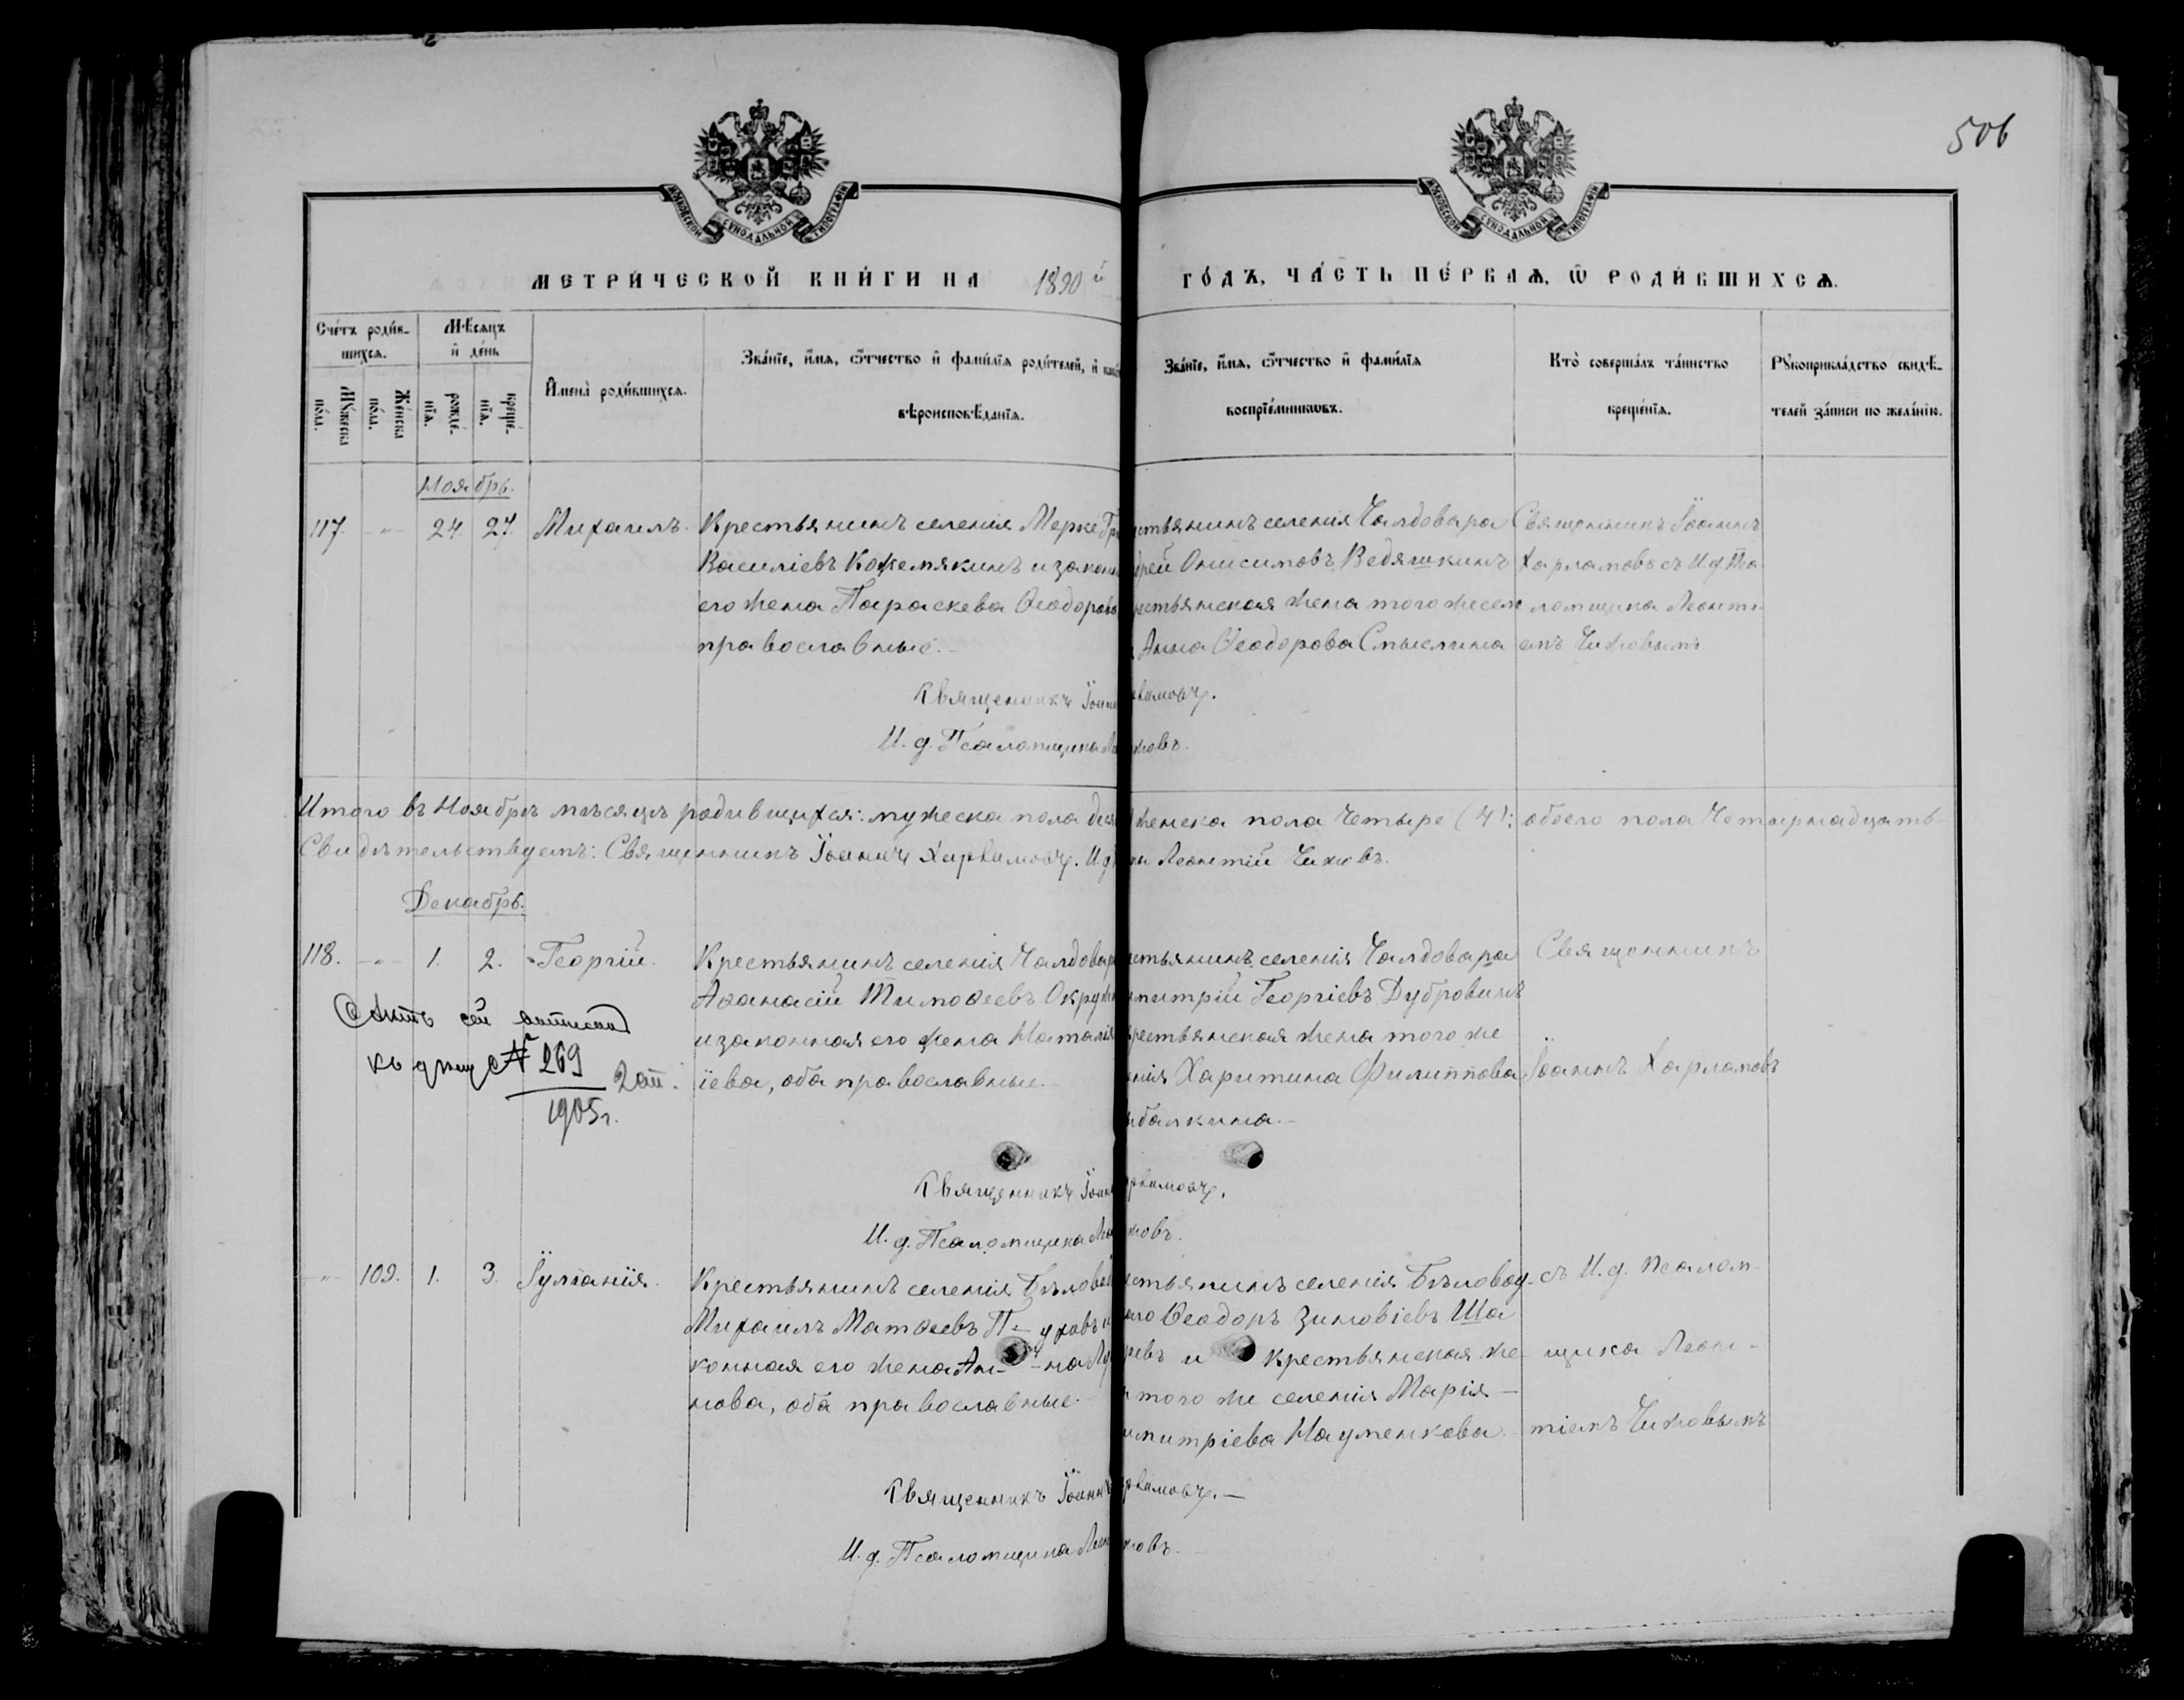 506
МОСКОВСКОЙ СѴНОДАЛЬНОЙ ТИПОГРАФІИ
МОСКОВСКОЙ СѴНОДАЛЬНОЙ ТИПОГРАФІИ
МЕТРИ́ЧЕСКОЙ КНИ́ГИ НА 1890й
ГО́ДЪ, ЧА́СТЬ ПЕ́РВАѦ, Ѡ РОДИ́ВШИХСѦ.
Сче́тъ роди́в-
шихсѧ.
Мꙋ́жеска
по́ла.
Же́нска
по́ла.
Мѣ́сѧцъ
и҆ де́нь
рожде́-
нїѧ.
креще́-
нїѧ.
И҆мена̀ роди́вшихсѧ.
Зва́нїе, и҆́мѧ, ѻ҆́тчество и҆ фами́лїѧ роди́телей, и҆
вѣроисповѣ́данїѧ.
Зва́нїе, и҆́мѧ, ѻ҆́тчество и҆ фами́лїѧ
воспрїе́мникѡвъ.
Кто̀ соверша́лъ та́инство
креще́нїѧ.
Рꙋкоприкла́дство свидѣ́-
телей за́писи по жела́нїю.
Ноябрь.
117. -"- 24. 27. Михаилъ.
Крестьянинъ селенія Мерке Гр
Василіевъ Кожемякинъ и закон
его жена Параскева Ѳеодоров
православные.-
стьянинъ селенія Чалдовара
дрей Онисимовъ Ведяшкинъ
рестьянская жена того же сел
Анна Ѳеодорова Смыслина
Священникъ Іоаннъ
Харламовъ съ И. д. Пса-
ломщика Леонті-
емъ Чижовымъ
Священникъ Іоанн рламовъ.
И. д. Псаломщика Ле жовъ.
Итого въ Ноябрѣ мѣсяцѣ родившихся: мужеска пола деся женска пола Четыре (4): обоего пола Четырнадцать
Свидѣтельствуемъ: Священникъ Іоаннъ Харламовъ. И д ка Леонтій Чижовъ.
Декабрь.
118. -"- 1. 2. Георгій.
Крестьянинъ селенія Чалдовар
Аѳанасій Тимоѳеевъ Окруж
и законная его жена Наталія
іева, оба православные.-
стьянинъ селенія Чалдовара
митрій Георгіевъ Дубровинъ
рестьянская жена того же
нія Харитина Филиппова
ыбалкина.-
Священникъ
Іоаннъ Харламовъ
Актъ сей выписанъ
къ № 269
1905 г.
2 ст.
Священникъ Іоанн рламовъ.
И. д. Псаломщика Ле жовъ.
-"- 109. 1. 3. Іуліанія.
Крестьянинъ селенія Бѣловод
Михаилъ Матѳеевъ П- уховъ и
конная его жена Ан- -на Лу
нова, оба православные.-
стьянинъ селенія Бѣловод-
аго Ѳеодоръ Зиновіевъ Ша
ревъ и крестьянская же-
того же селенія Марія -
митріева Науменкова.
съ И. д. Псалом-
щика Леон-
тіемъ Чижовымъ
Священникъ Іоаннъ рламовъ. -
И. д. Псаломщика Леон жовъ.